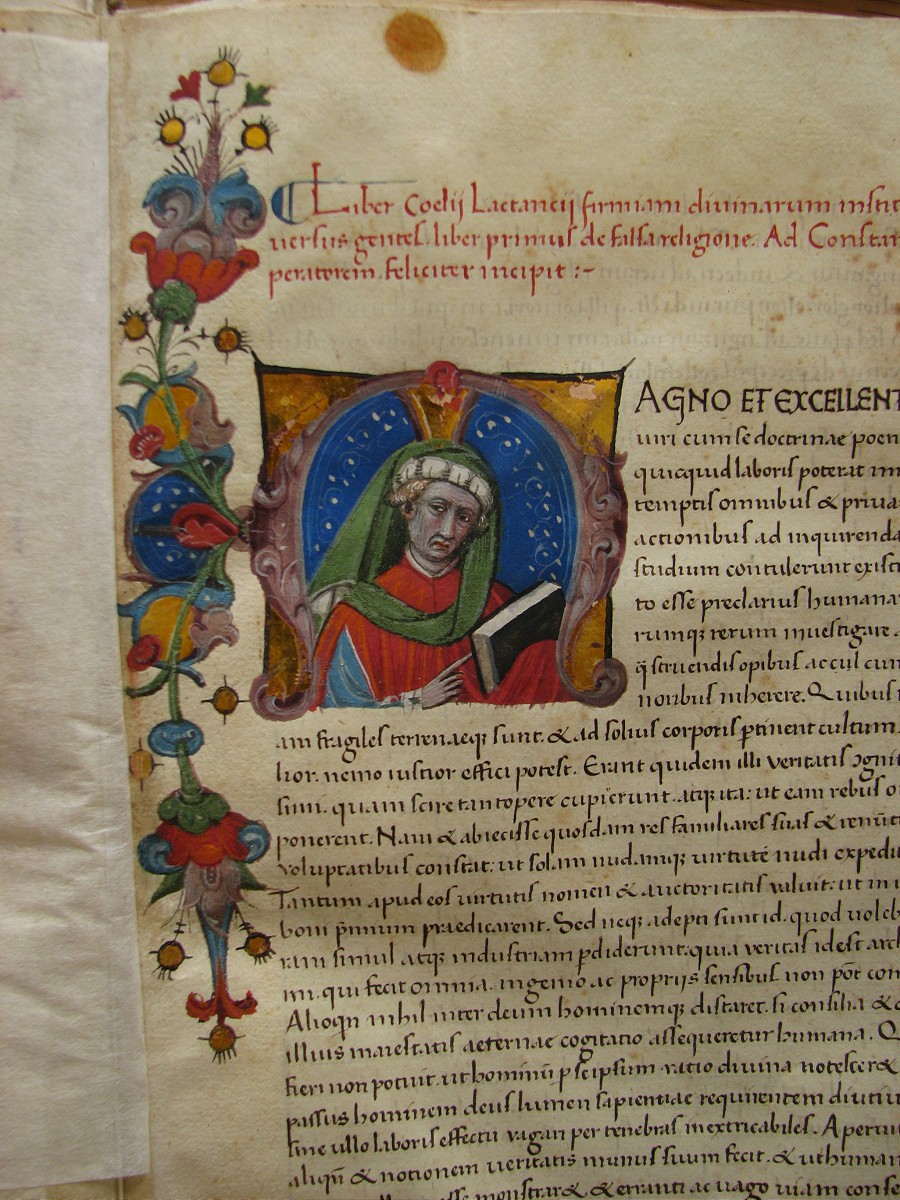 Liber Coelij Lactancij firmiani diuinarum instit
uersus gentes. liber primus de falsa religione. Ad Constan
peratorem. feliciter incipit :~
M AGNO ET EXCELLENT
uiri cum se doctrinae poen
quicquid laboris poterat im
temptis omnibus & priua
actionibus ad inquirenda
studium contulerunt existi
to esse preclarius humanar
rumq; rerum inuestigare
q̃ struendis opibus ac cul cum
noribus inherere. Quibus
am fragiles terrenaeq; sunt. & ad solius corporis ꝑtinent cultum.
lior. nemo iustior effici potest. Erant quidem illi veritatis ɔgnit
simi. quam scire tantopere cupierunt. atq; ita: ut eam rebus o
ponerent. Nam & abiecisse quosdam res familiares suas & renũt
voluptatibus constat: ut solam nudamq; uirtutẽ nudi expedit
Tantum apud eos uirtutis nomen & auctoritatis valuit: ut in i
boni p̃mium praedicarent. Sed neq; adepti sunt id. quod uoleb
ram simul atq; industriam ꝑdiderunt. quia veritas id est arch
mi. qui fecit omnia. ingenio ac proprijs sensibus non põt com
Alioqñ nihil inter deum hominemq; distaret. si consilia & d
illius maiestatis aeternae cogitatio assequeretur humana. Q
fieri non potuit. ut hominũ ꝑ seipsum ratio diuina notescer&
passus hominem deus lumen sapientiae requirentem diutiu
sine ullo laboris effectu vagari per tenebras inextricabiles. Aperuit
aliqñ & notionem ueritatis munus suum fecit. & ut human
monstrar& & erranti ac uago uiam conse